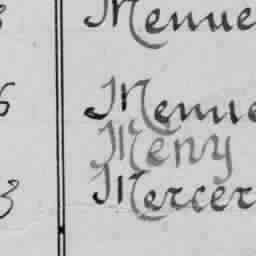 Menue
6 Menue
Meny
3 Mercer